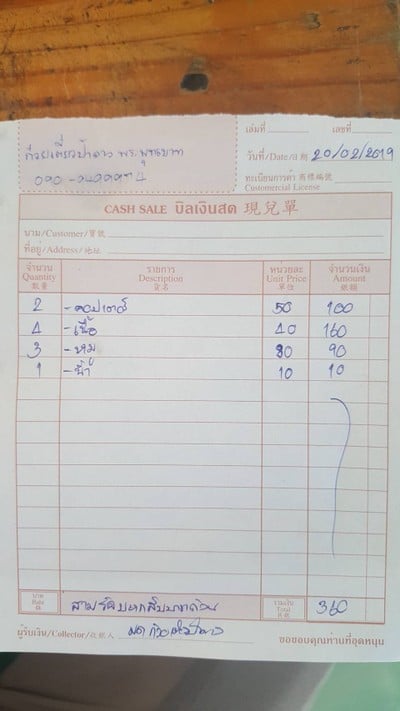 เล่มที่ เลขที่
ก๋วยเตี๋ยวป้าดาว พระพุทธบาท
วันที่/Date/日期 20/02/2019
090-
ทะเบียนการค้า 商標編號
Commercial License
CASH SALE บิลเงินสด 現兌單
นาม/Customer/寶號
ที่อยู่/Address/地址
จำนวน รายการ หน่วยละ จำนวนเงิน
Quantity Description Unit Price Amount
數量 貨名 單位 銀額
2 - 50 100
4 -เนื้อ 40 160
3 -หมู 30 90
1 -น้ำ 10 10
บาท สามร้อยหกสิบบาทถ้วน รวมเงิน 360
Baht Total
ผู้รับเงิน/Collector/收銀人
ขอขอบคุณท่านที่อุดหนุน